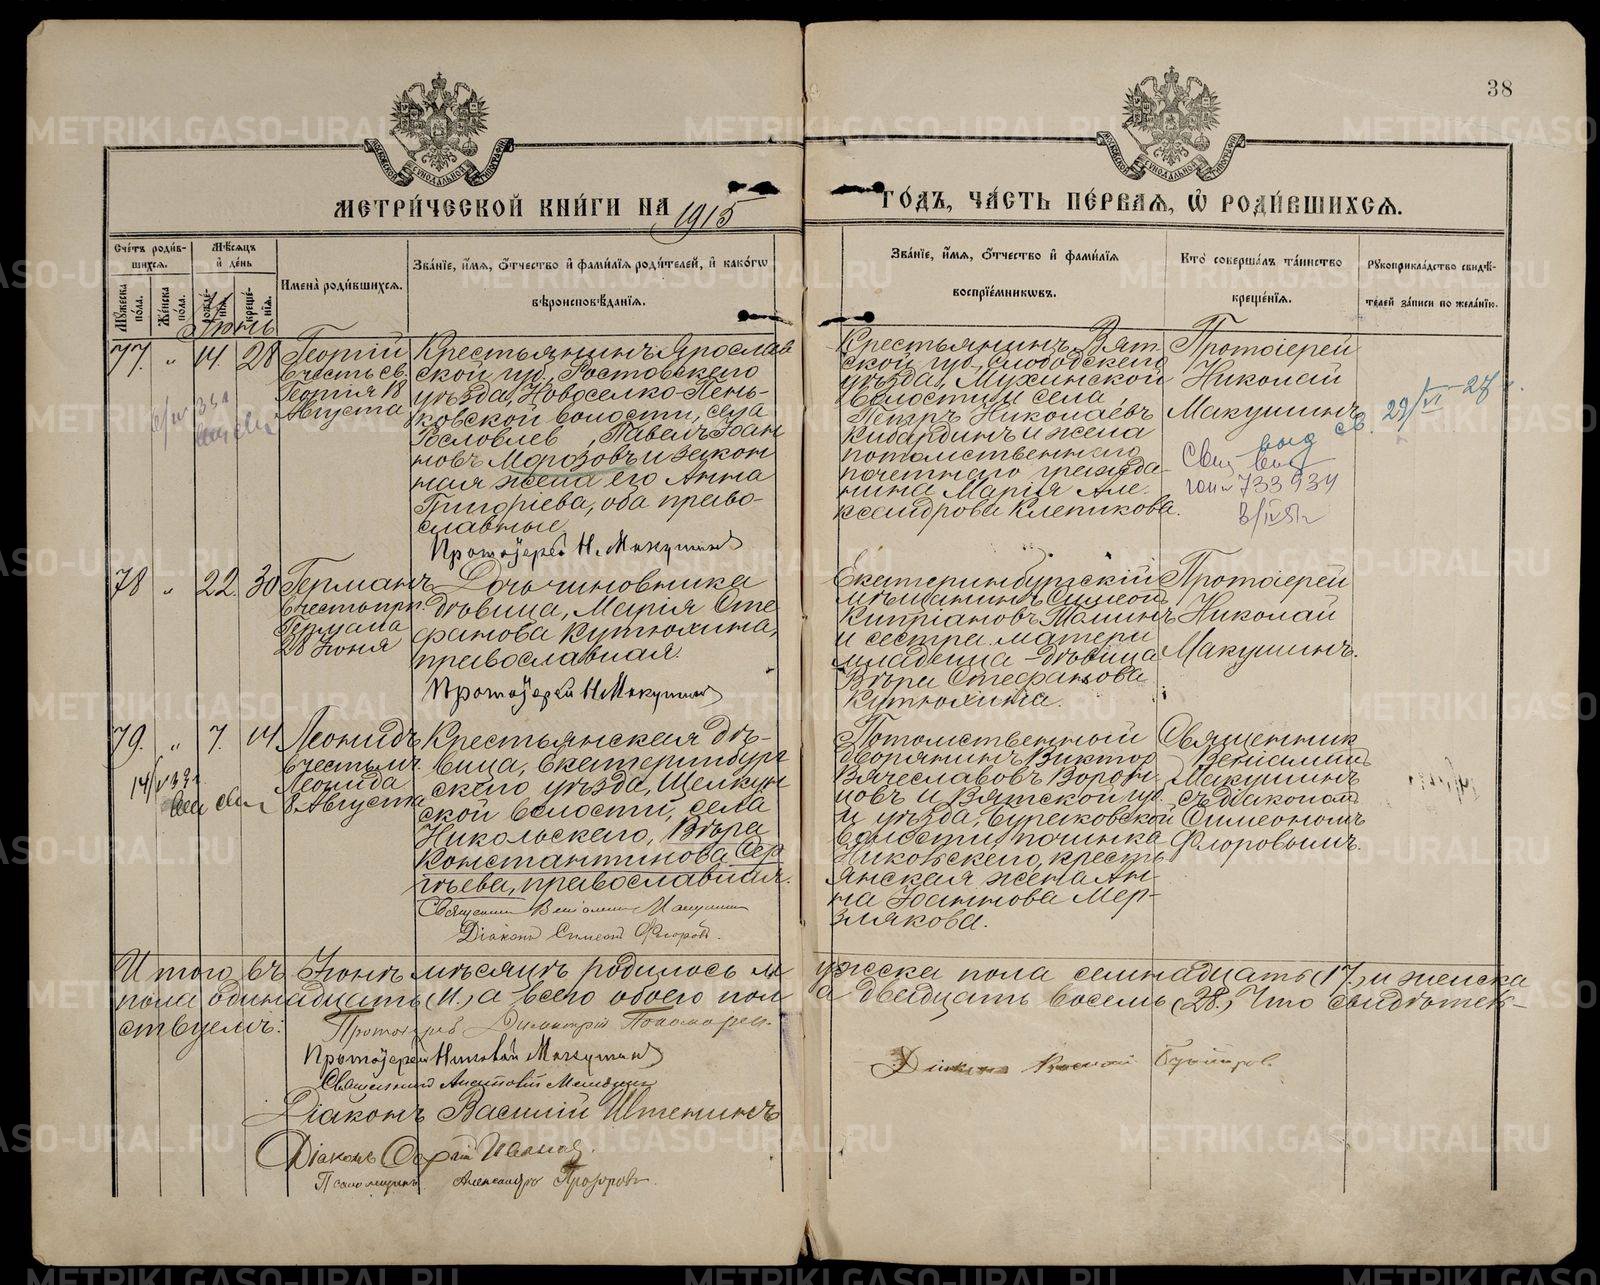 38
МЕТРИ́ЧЕСКОЙ КНИ́ГИ НА 1915 ГО́ДЪ, ЧА́СТЬ ПЕ́РВАЯ, Ѡ҆ РОДИ́ВШИХСЯ.
Сче́тъ роди́в-
шихся.
Мꙋ́жеска пола.
Же́нска пола.
Мѣ́сяцъ
и҆ де́нь
рожде́-нїя.
креще́-нїя.
Имена̀ роди́вшихся.
Зва́нїе, и҆́мя, ѻ҆́тчество и҆ фами́лїя роди́телей, и҆ како́гѡ
вѣроисповѣ́данїя.
Зва́нїе, и҆́мя, ѻ҆́тчество и҆ фами́лїя
воспрїе́мникѡвъ.
Кто̀ соверша́лъ та́инство
креще́нїя.
Рꙋкоприкла́дство свидѣ́-
телей за́писи по жела́нїю.
Июнь
77. " 14. 28
Георгій
въ честь св.
Георгія 18
Августа
Крестьянинъ Ярослав
ской губ., Ростовскаго
уѣзда, Новоселко-Пень-
ковской волости, села
Гословлев , Павелъ Іоан
новъ Морозовъ и закон
ная жена его Анна
Григоріева, оба право-
славные
Протоіерей Н. Макушинъ
Крестьянинъ Вят-
ской губ., Слободскаго
уѣзда, Мухинской
волости и села
Петръ Николаевъ
Кибардинъ и жена
потомственнаго
почетнаго гражда-
нина Марія Але-
ксандрова Клепикова.
Протоіерей
Николай
Макушинъ
выд св. 29/VI-27 г.
733934
78 " 22. 30
Германъ
въ честь прп.
Германа
28 Іюня
Дочь чиновника
дѣвица, Марія Сте
фанова Кутюхина,
православная.
Протоіерей Н. Макушинъ
Екатеринбургскій
мѣщанинъ Симеон
Кипріановъ Томинъ
и сестра матери
младенца - дѣвица
Вѣра Стефанова
Кутюхина.
Протоіерей
Николай
Макушинъ.
79. " 7. 14
14/V 33 г.
Леонидъ
въ честь мч.
Леонида
8 Августа
Крестьянская дѣ-
вица, Екатеринбург
скаго уѣзда, Щелкун
ской волости, села
Никольскаго, Вѣра
Константинова Сер
гѣева, православная.
Священникъ Веніаминъ Макушинъ
Діаконъ Симеонъ Флоровъ.
Потомственный
дворянинъ Виктор
Вячеславовъ Ворон-
цовъ и Вятской губ.
и уѣзда, Бурковской
волости, починка
Никовскаго, кресть
янская жена Ан-
на Іоаннова Мер-
злякова.
Священник
Веніамин
Макушинъ
съ діаконом
Симеономъ
Флоровымъ.
Итого въ Іюнѣ мѣсяцѣ родилось м
ужеска пола семнадцать (17.) и женска
пола одинадцать (11.) а всего обоего пол
а двадцать восемь (28.) Что свидѣтель-
ствуемъ:
Протоіерей Димитрій Пономарев.
Протоіерей Николай Макушинъ
Священникъ Анатолій
Діаконъ Василій Итенинъ
Діаконъ Сергій Иванов.
Псаломщикъ Александръ Прозоровъ.
Діаконъ